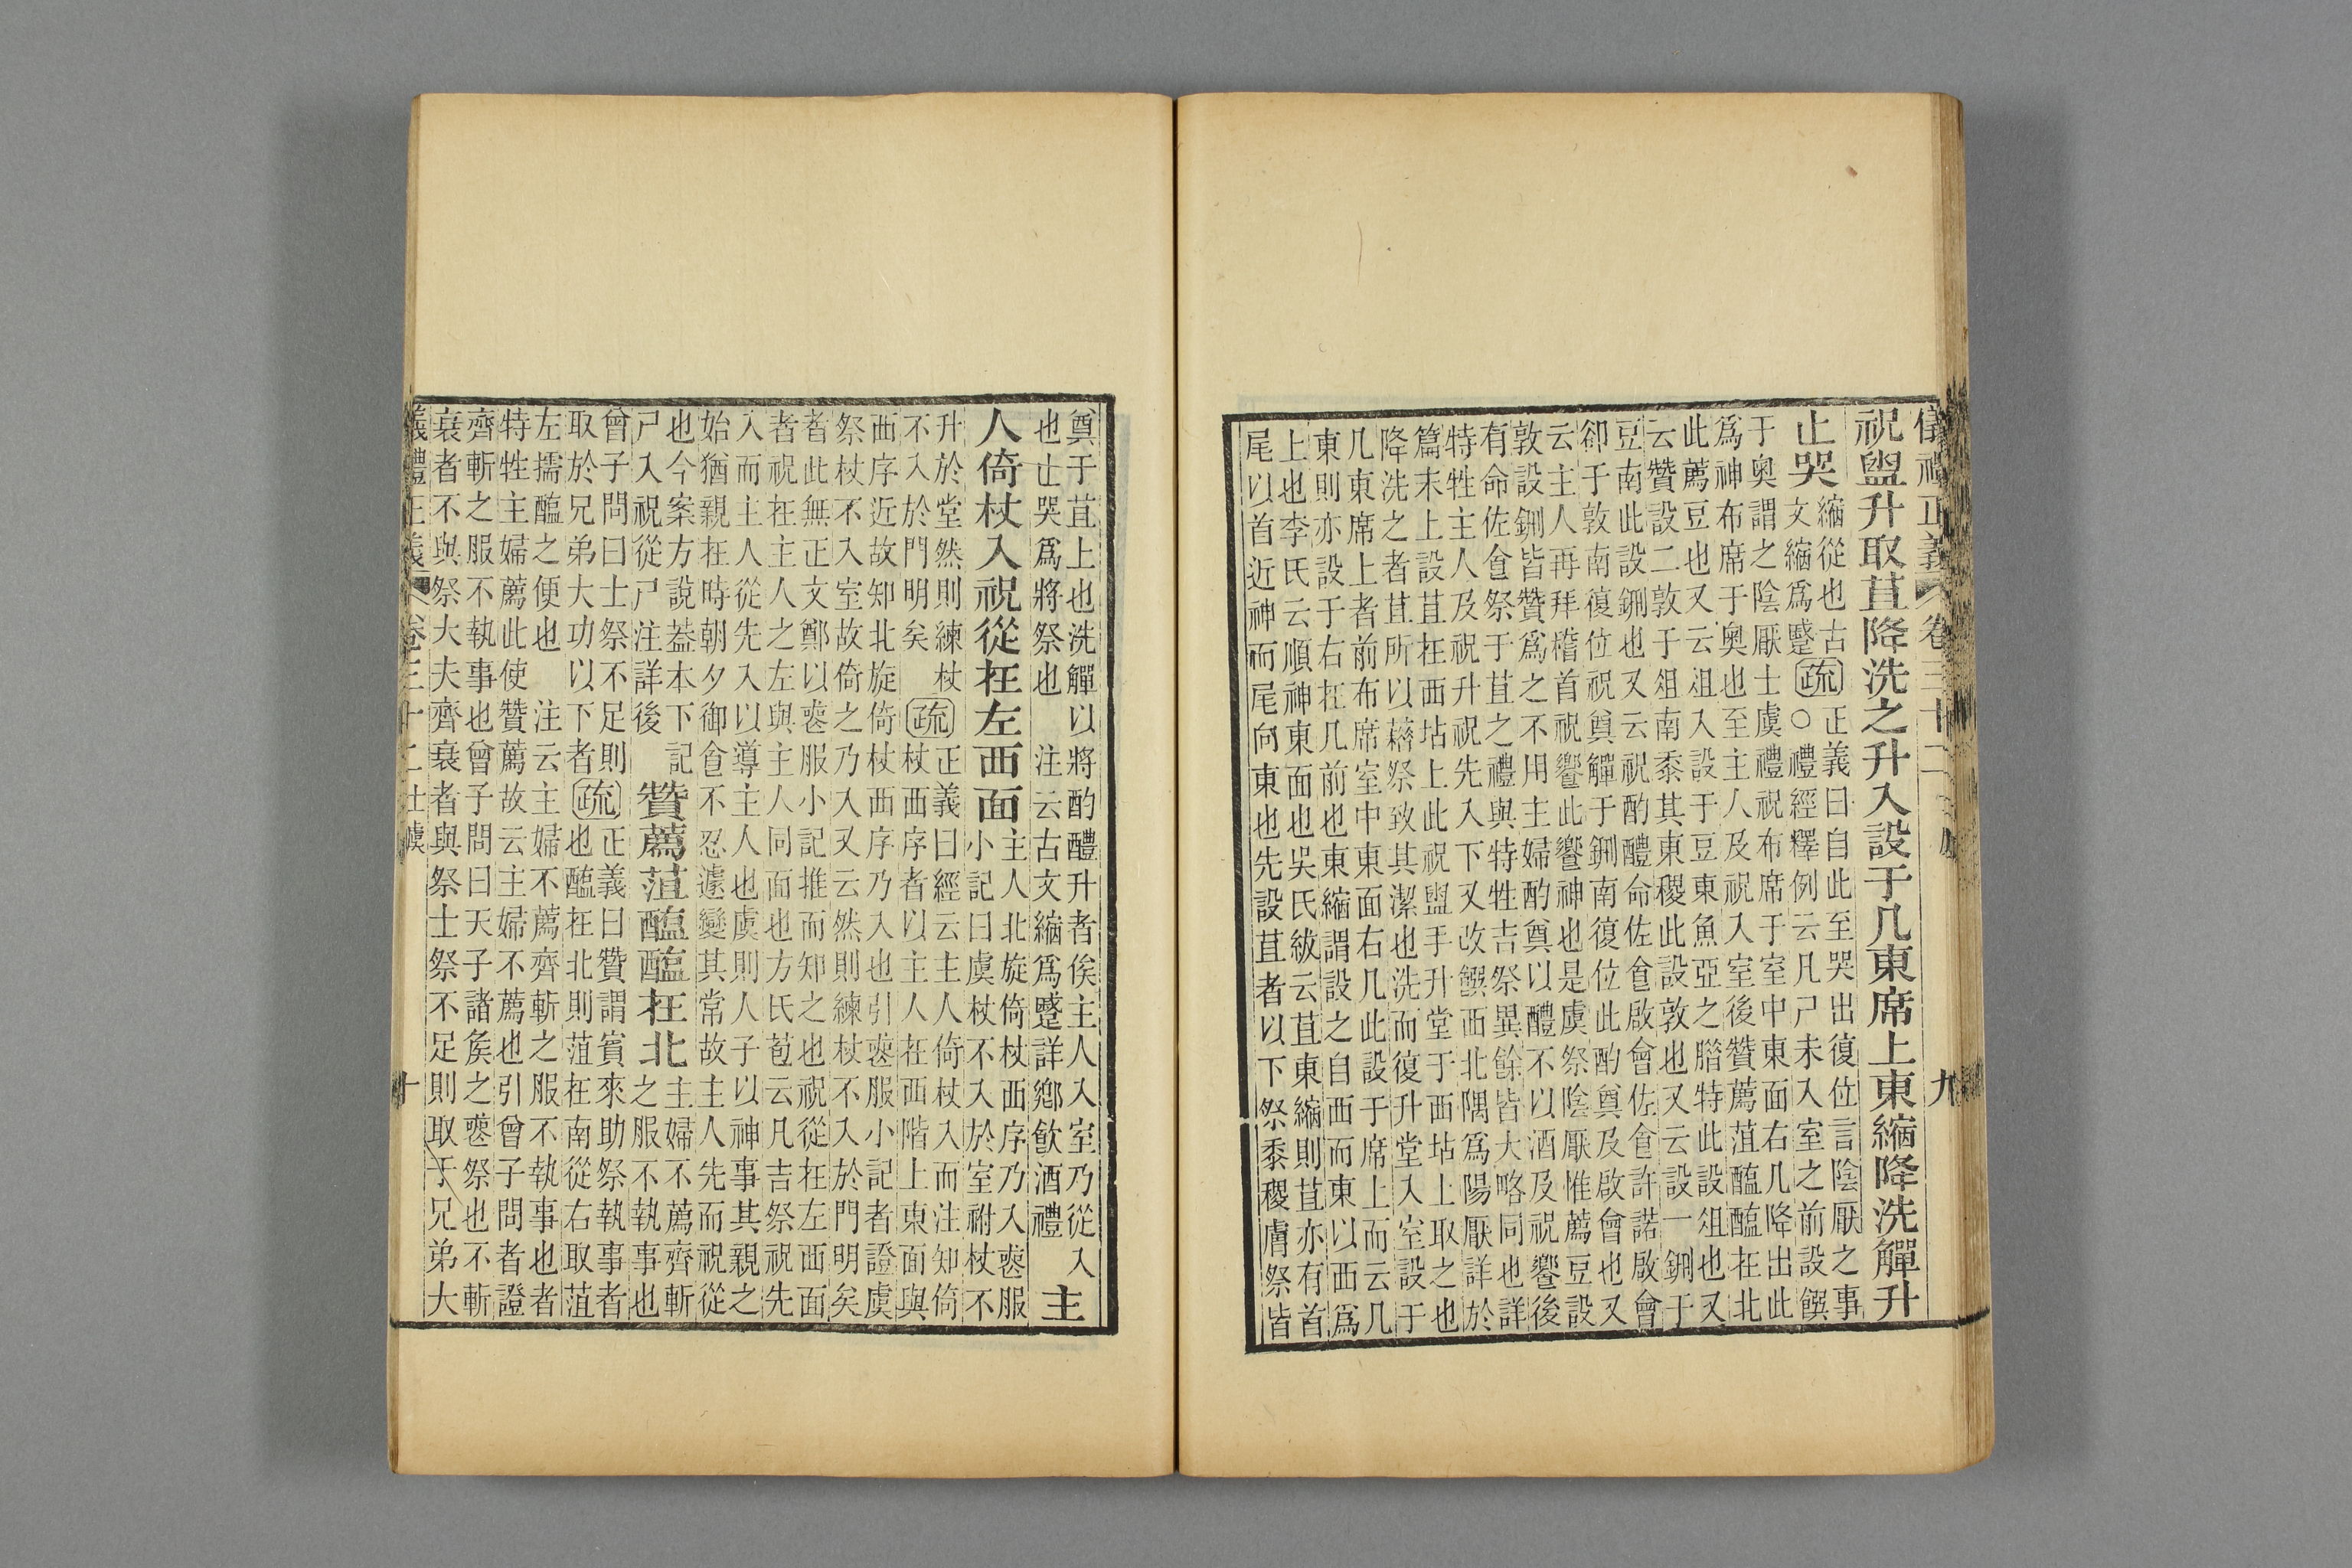 儀禮正義 卷三十二 九
祝盥升取苴降洗之升入設于几東席上東縮降洗觶升
止哭縮從也古文縮爲蹙疏正義曰自此至哭出復位言陰厭之事
○禮經釋例云凡尸未入室之前設饌
于奧謂之陰厭士虞禮祝布席于室中東面右几降出此
爲神布席于奧也至主人及祝入室後贊薦菹醢醢在北
此薦豆也又云俎入設于豆東魚亞之腊特此設俎也又
云贊設二敦于俎南黍其東稷此設敦也又云設一鉶于
豆南此設鉶也又云祝酌醴命佐食啟會佐食許諾啟會
卻于敦南復位祝奠觶于鉶南復位此酌奠及啟會也又
云主人再拜稽首祝饗此饗神也是虞祭陰厭惟薦豆設
敦設鉶皆贊爲之不用主婦酌奠以醴不以酒及祝饗後
有命佐食祭于苴之禮與特牲吉祭異餘皆大略同也詳
特牲主人及祝升祝先入下又改饌西北隅爲陽厭詳於
篇末上設苴在西坫上此祝盥手升堂于西坫上取之也
降洗之者苴所以藉祭致其潔也洗而復升堂入室設于
几東席上者前布席室中東面右几此設于席上而云几
東則亦設于右在几前也東縮謂設之自西而東以西爲
上也李氏云順神東面也吳氏紱云苴東縮則苴亦有首
尾以首近神而尾向東也先設苴者以下祭黍稷膚祭皆
奠于苴上也洗觶以將酌醴升者俟主人入室乃從入
也止哭爲將祭也 注云古文縮爲蹙詳鄉飲酒禮
主
人倚杖入祝從在左西面主人北旋倚杖西序乃入喪服
小記曰虞杖不入於室祔杖不
升於堂然則練杖
不入於門明矣疏正義曰經云主人倚杖入而注知倚
杖西序者以主人在西階上東面與
西序近故知北旋倚杖西序乃入也引喪服小記者證虞
祭杖不入室故倚之乃入又云然則練杖不入於門明矣
者此無正文鄭以喪服小記推而知之也祝從在左西面
者祝在主人之左與主人同面也方氏苞云凡吉祭祝先
入而主人從先入以導主人也虞則人子以神事其親之
始猶親在時朝夕御食不忍遽變其常故主人先而祝從
也今案方說蓋本下記
尸入祝從尸注詳後
贊薦菹醢醢在北主婦不薦齊斬
之服不執事也
曾子問曰士祭不足則
取於兄弟大功以下者疏正義曰贊謂賓來助祭執事者
也醢在北則菹在南從右取菹
左擩醢之便也 注云主婦不薦齊斬之服不執事也者
特牲主婦薦此使贊薦故云主婦不薦也引曾子問者證
齊斬之服不執事也曾子問曰天子諸侯之喪祭也不斬
衰者不與祭大夫齊衰者與祭士祭不足則取于兄弟大
儀禮正義 卷三十二 士虞 十